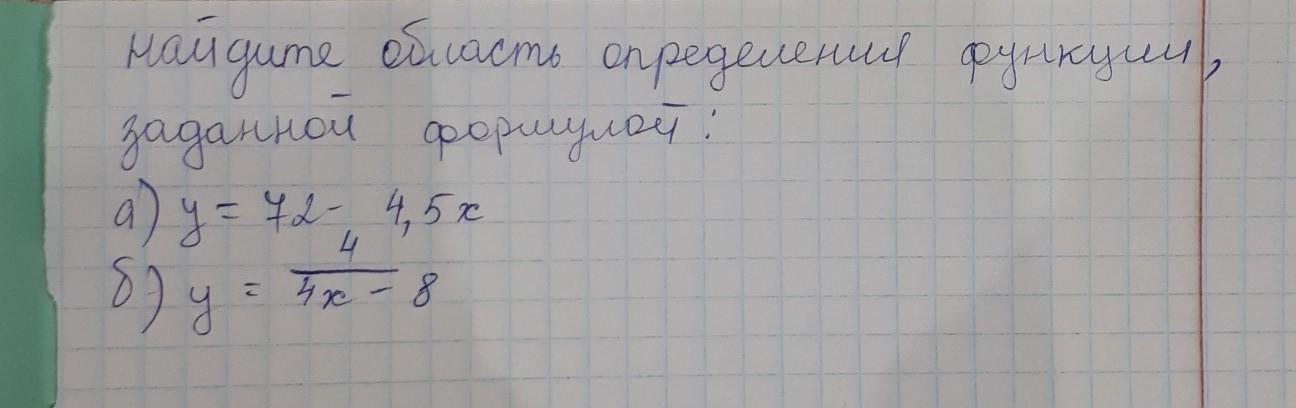 найдите область определения функции,
заданной формулой:
а) y = 72 - 4,5x
б) y = 4/(4x - 8)